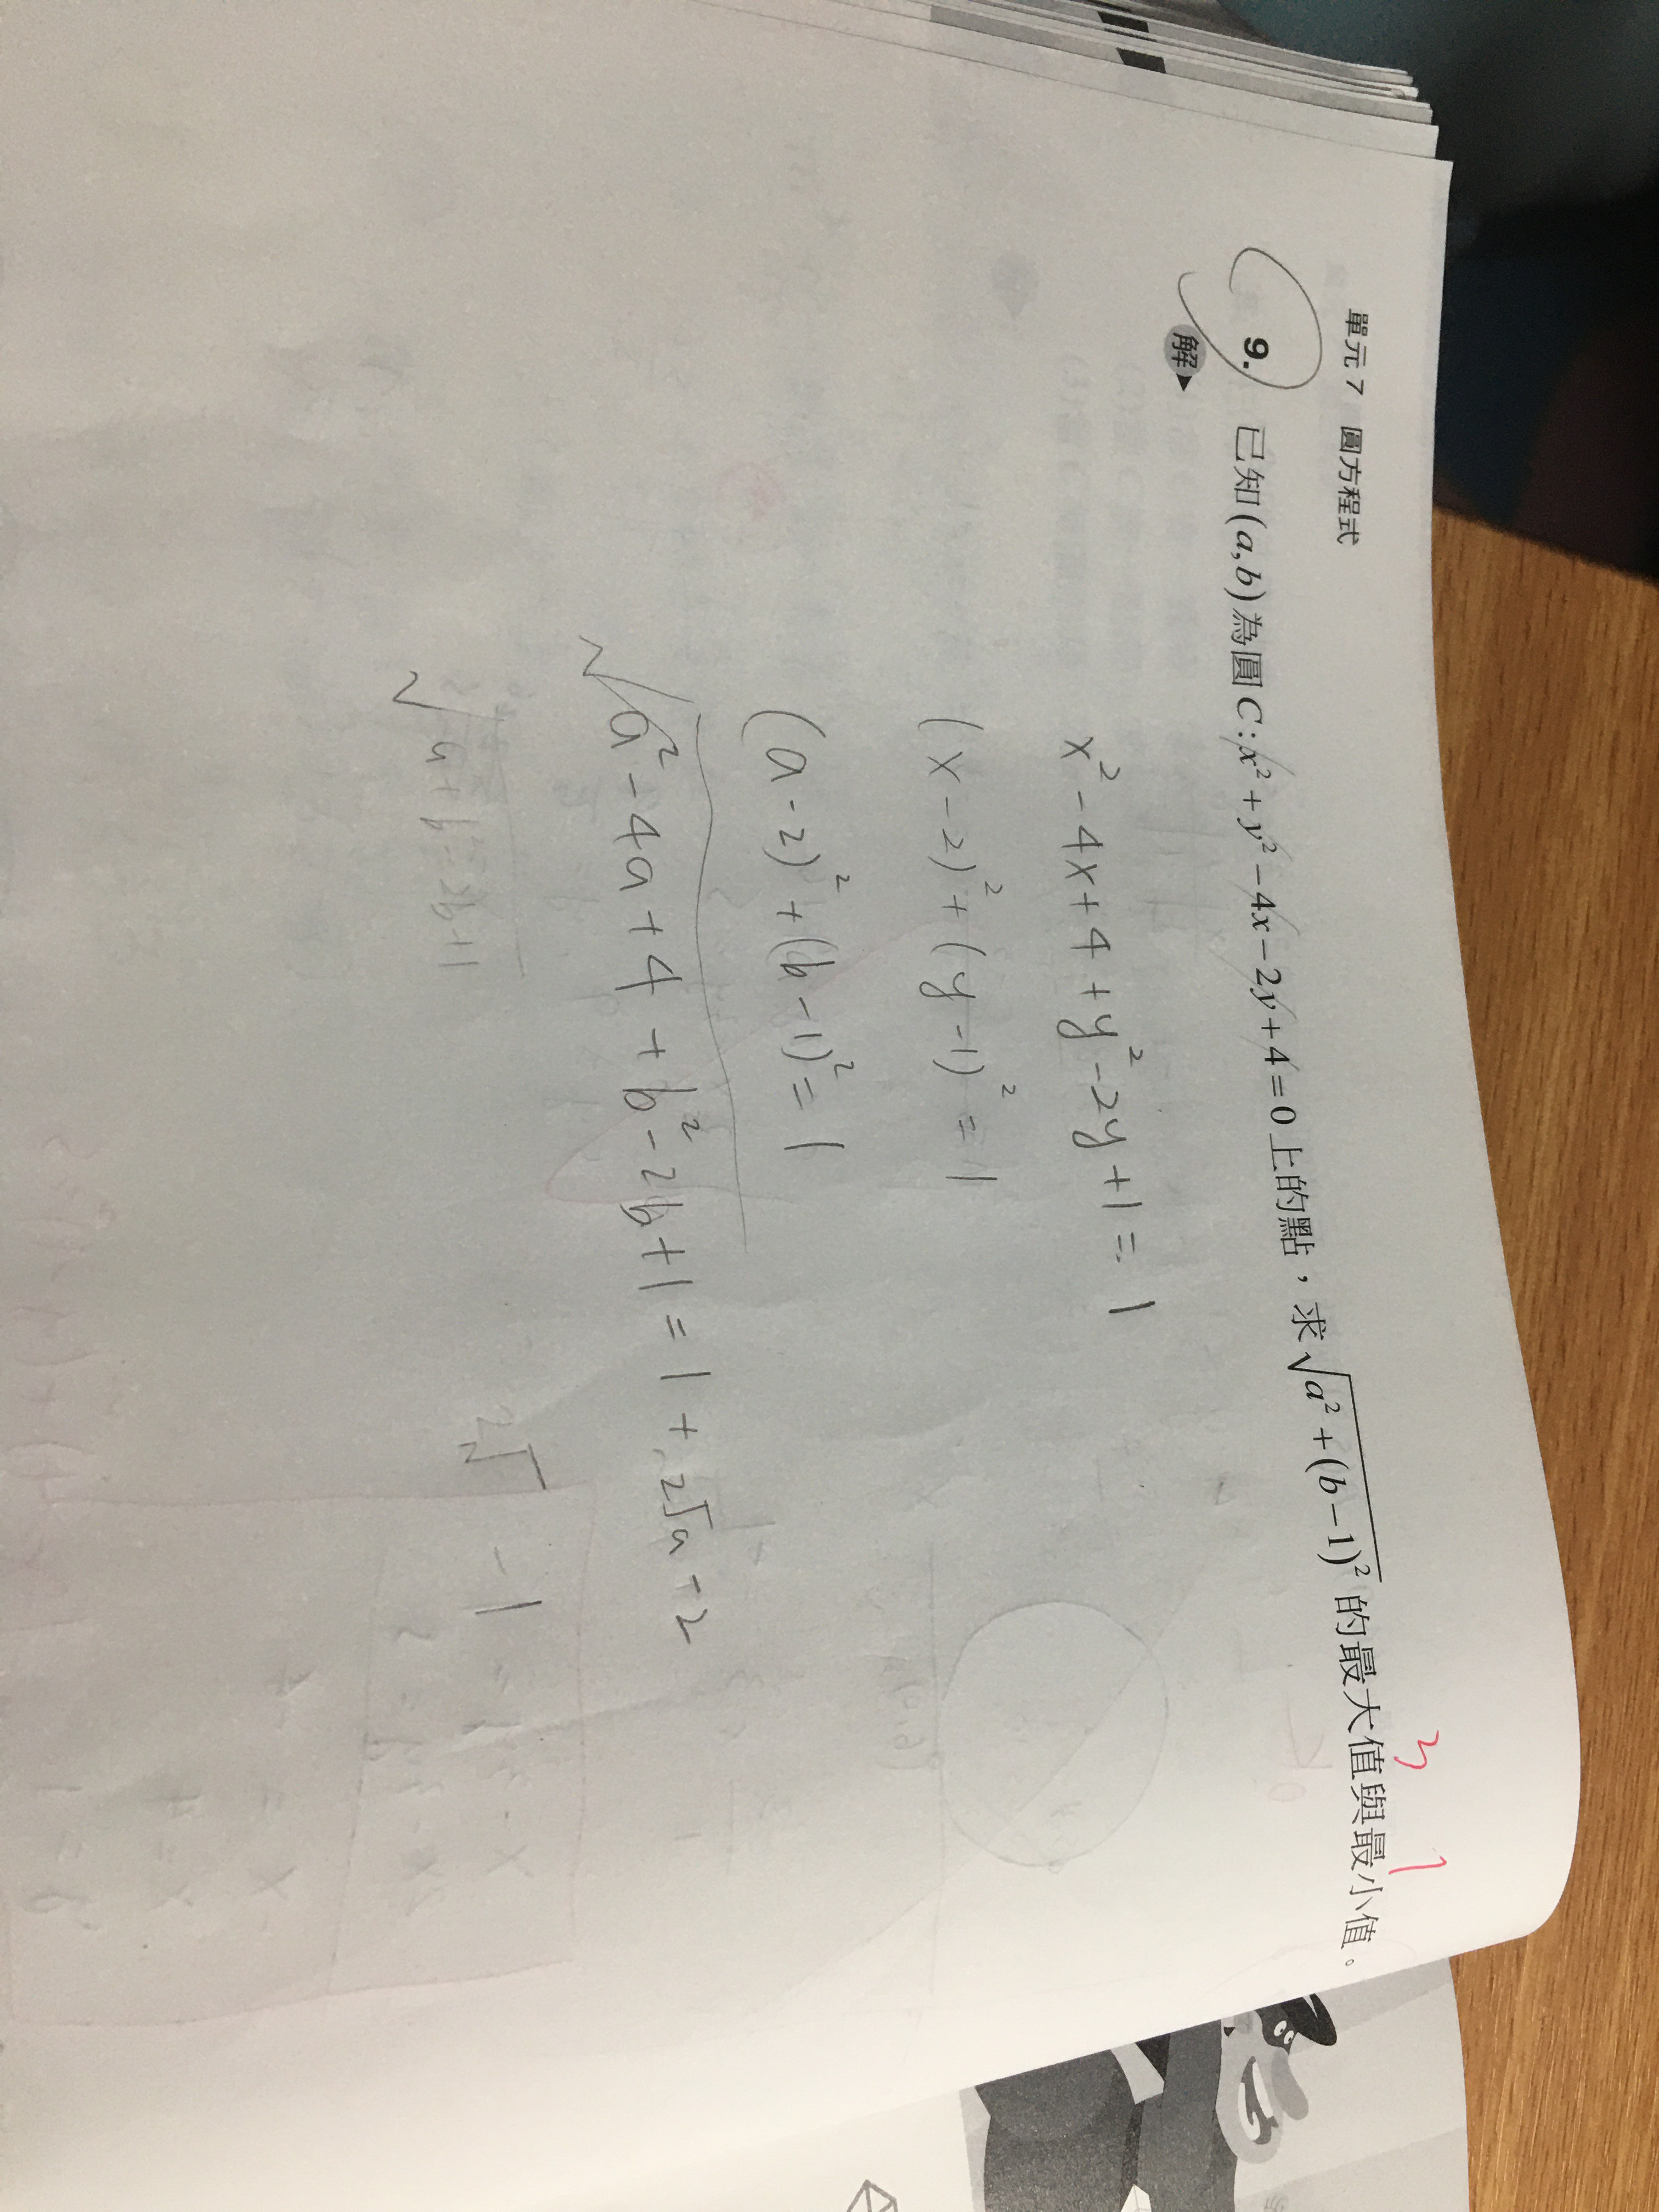 單元 7 圓方程式
9. 已知(a,b)為圓C:x²+y²−4x−2y+4=0上的點，求√a²+(b−1)²的最大值與最小值。
3 1
解
x²-4x+4+y²-2y+1=1
(x-2)²+(y-1)²=1
(a-2)²+(b-1)²=1
√a²-4a+4+b²-2b+1=1+2√a-2
2√ -1